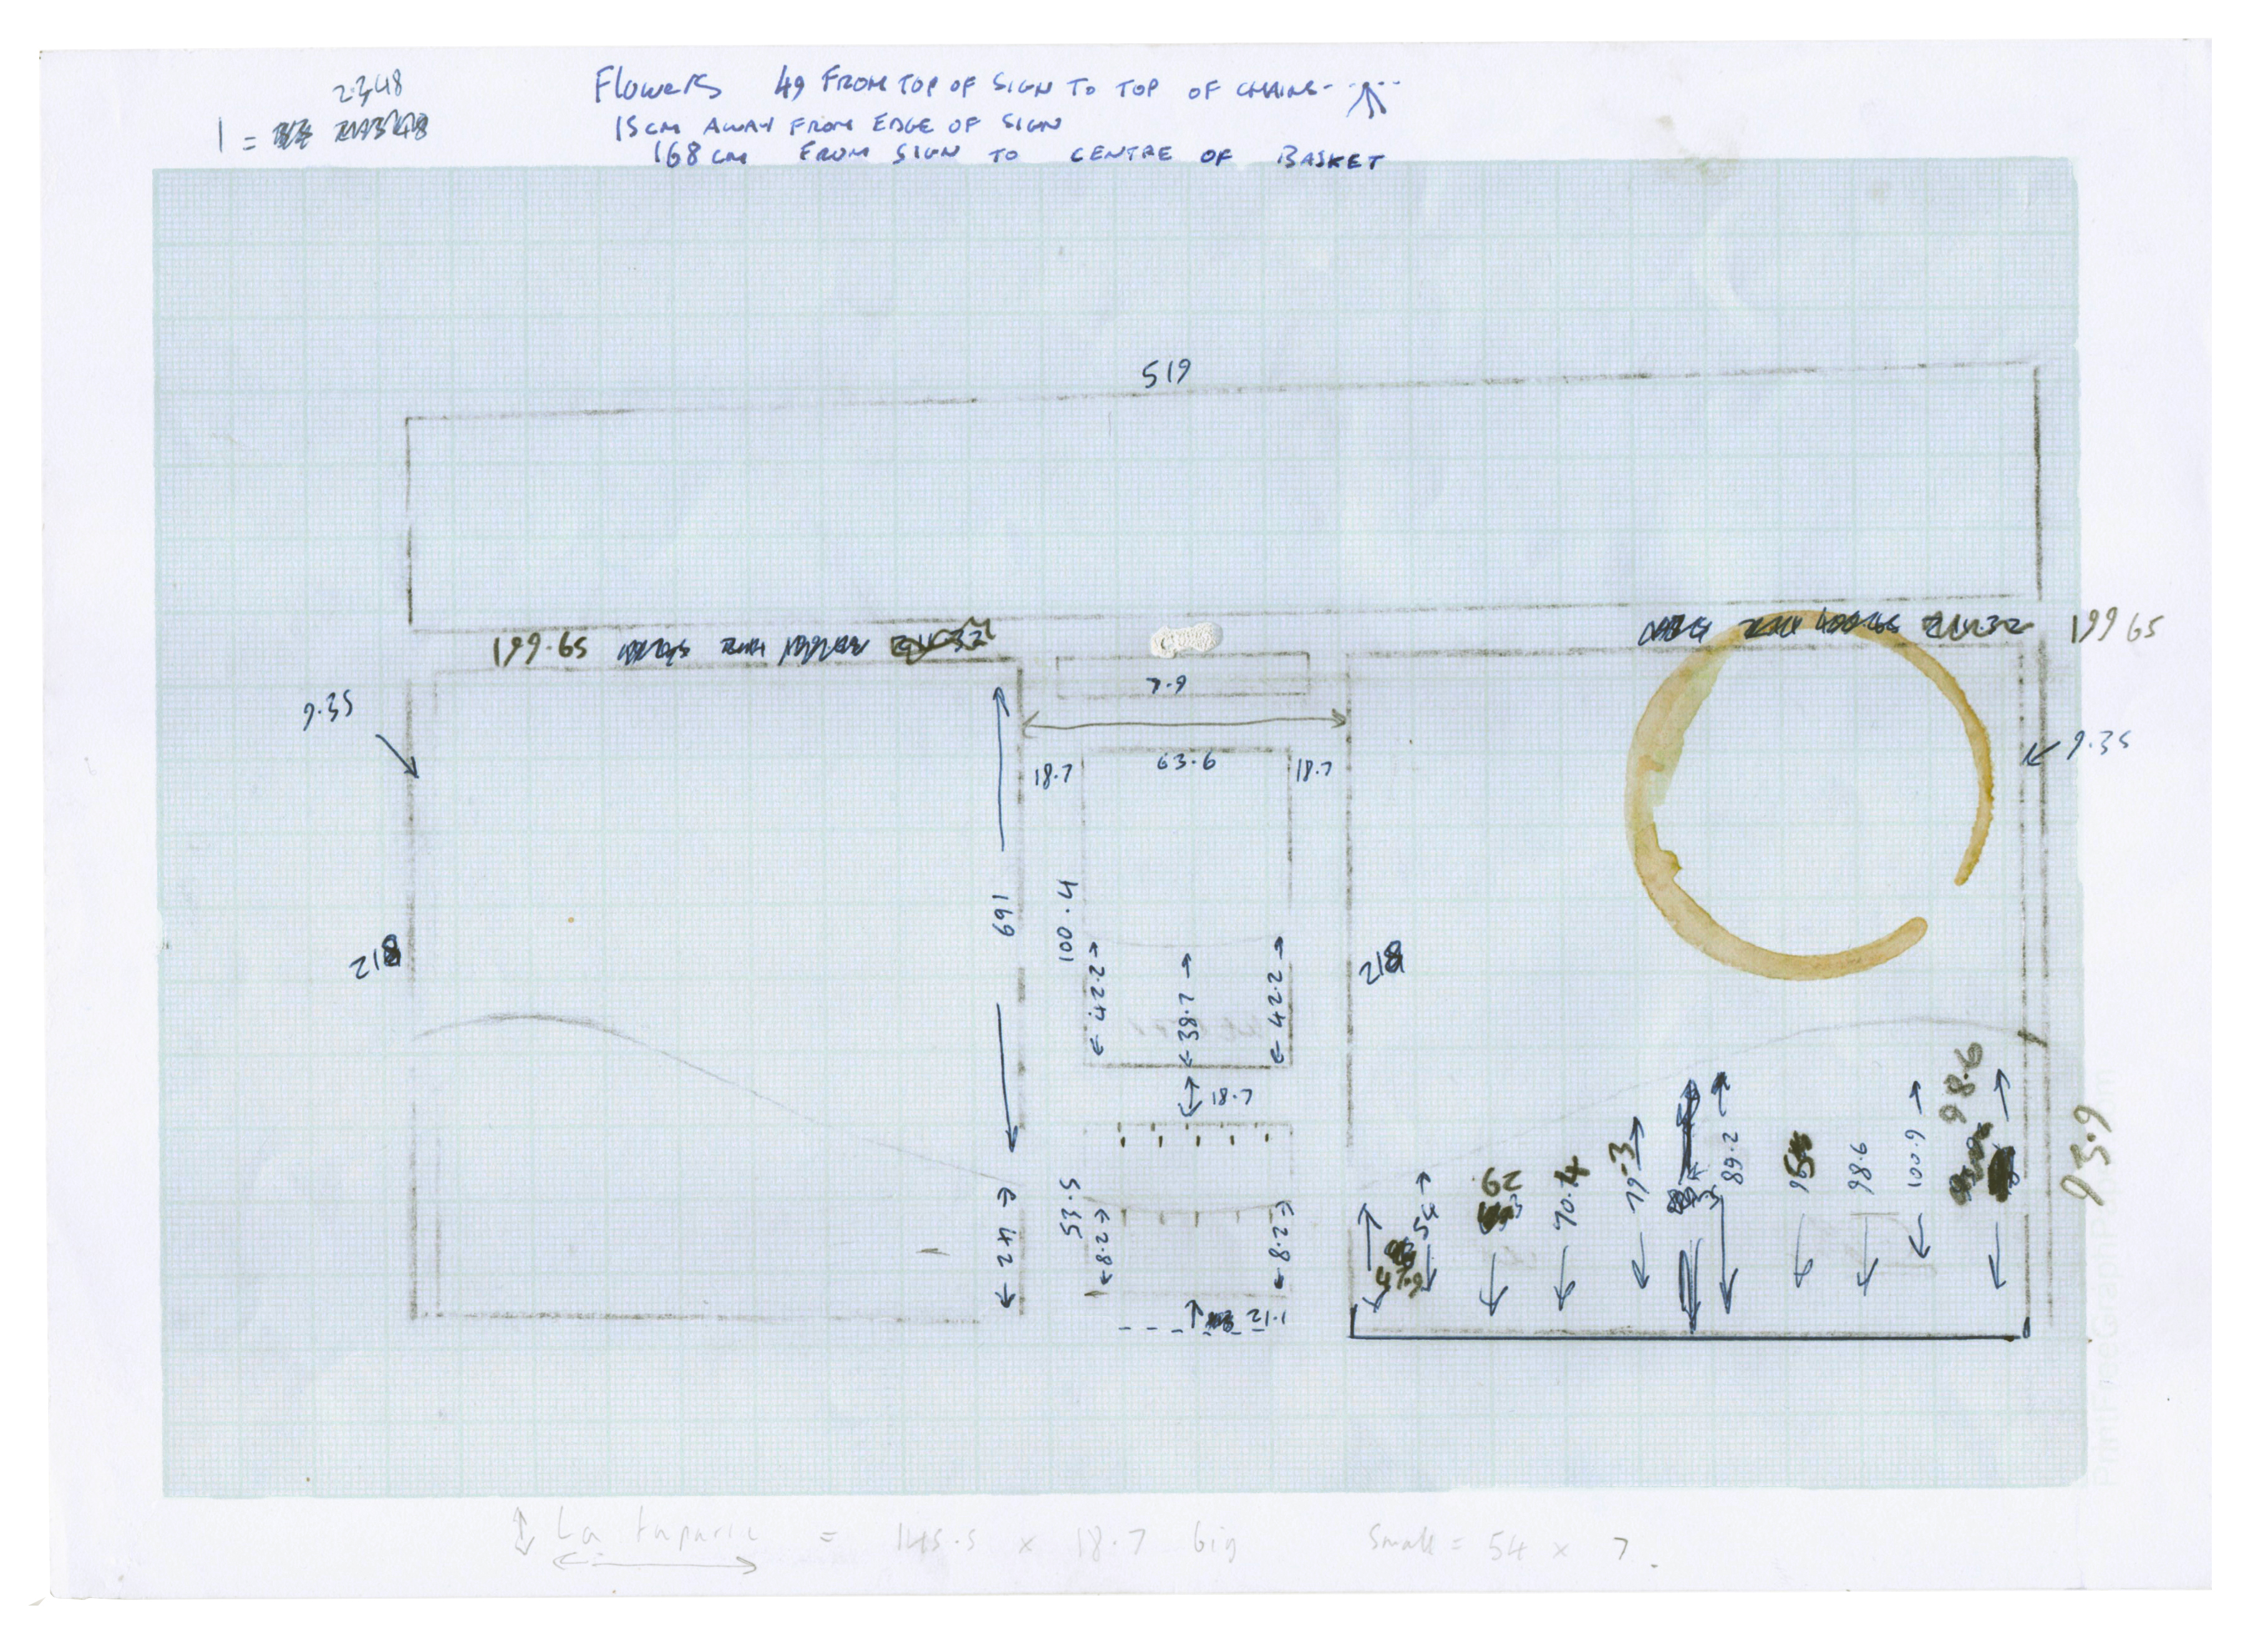 2.348
1 =
Flowers 49 FROM TOP OF SIGN TO TOP OF CHAINS
15 CM AWAY FROM EDGE OF SIGN
168 CM FROM SIGN TO CENTRE OF BASKET
519
199.65
199 65
7.9
9.35
9.35
18.7 63.6 18.7
169
100.4
218
218
42.2
38.7
42.2
18.7
98.6
93.9
53.5
42
8.2
8.2
21.1
47.9
54
62
70.4
79.3
89.2
95
98.6
100.9
La taparia = 145.5 x 18.7 big small = 54 x 7